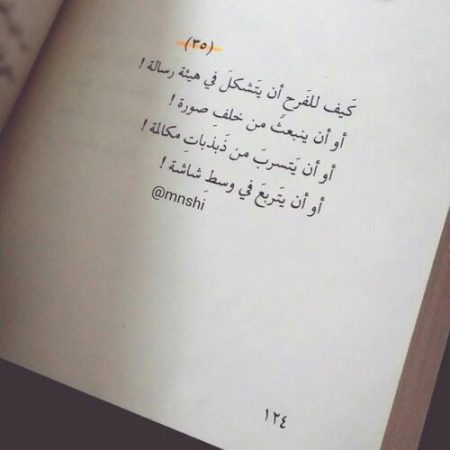 (٣٥)
كَيف للفَرحِ أن يَتشكلَ في هيئة رسالة !
أو أن ينبعثَ من خلفِ صورة !
أو أن يَتسربَ من ذَبذَباتِ مكالمة !
أو أن يَتربعَ في وسطِ شاشة !
@mnshi
١٢٤